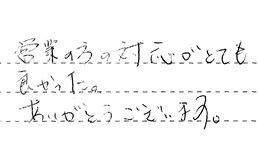 営業の方の対応がとても
良かった。
ありがとうございます。